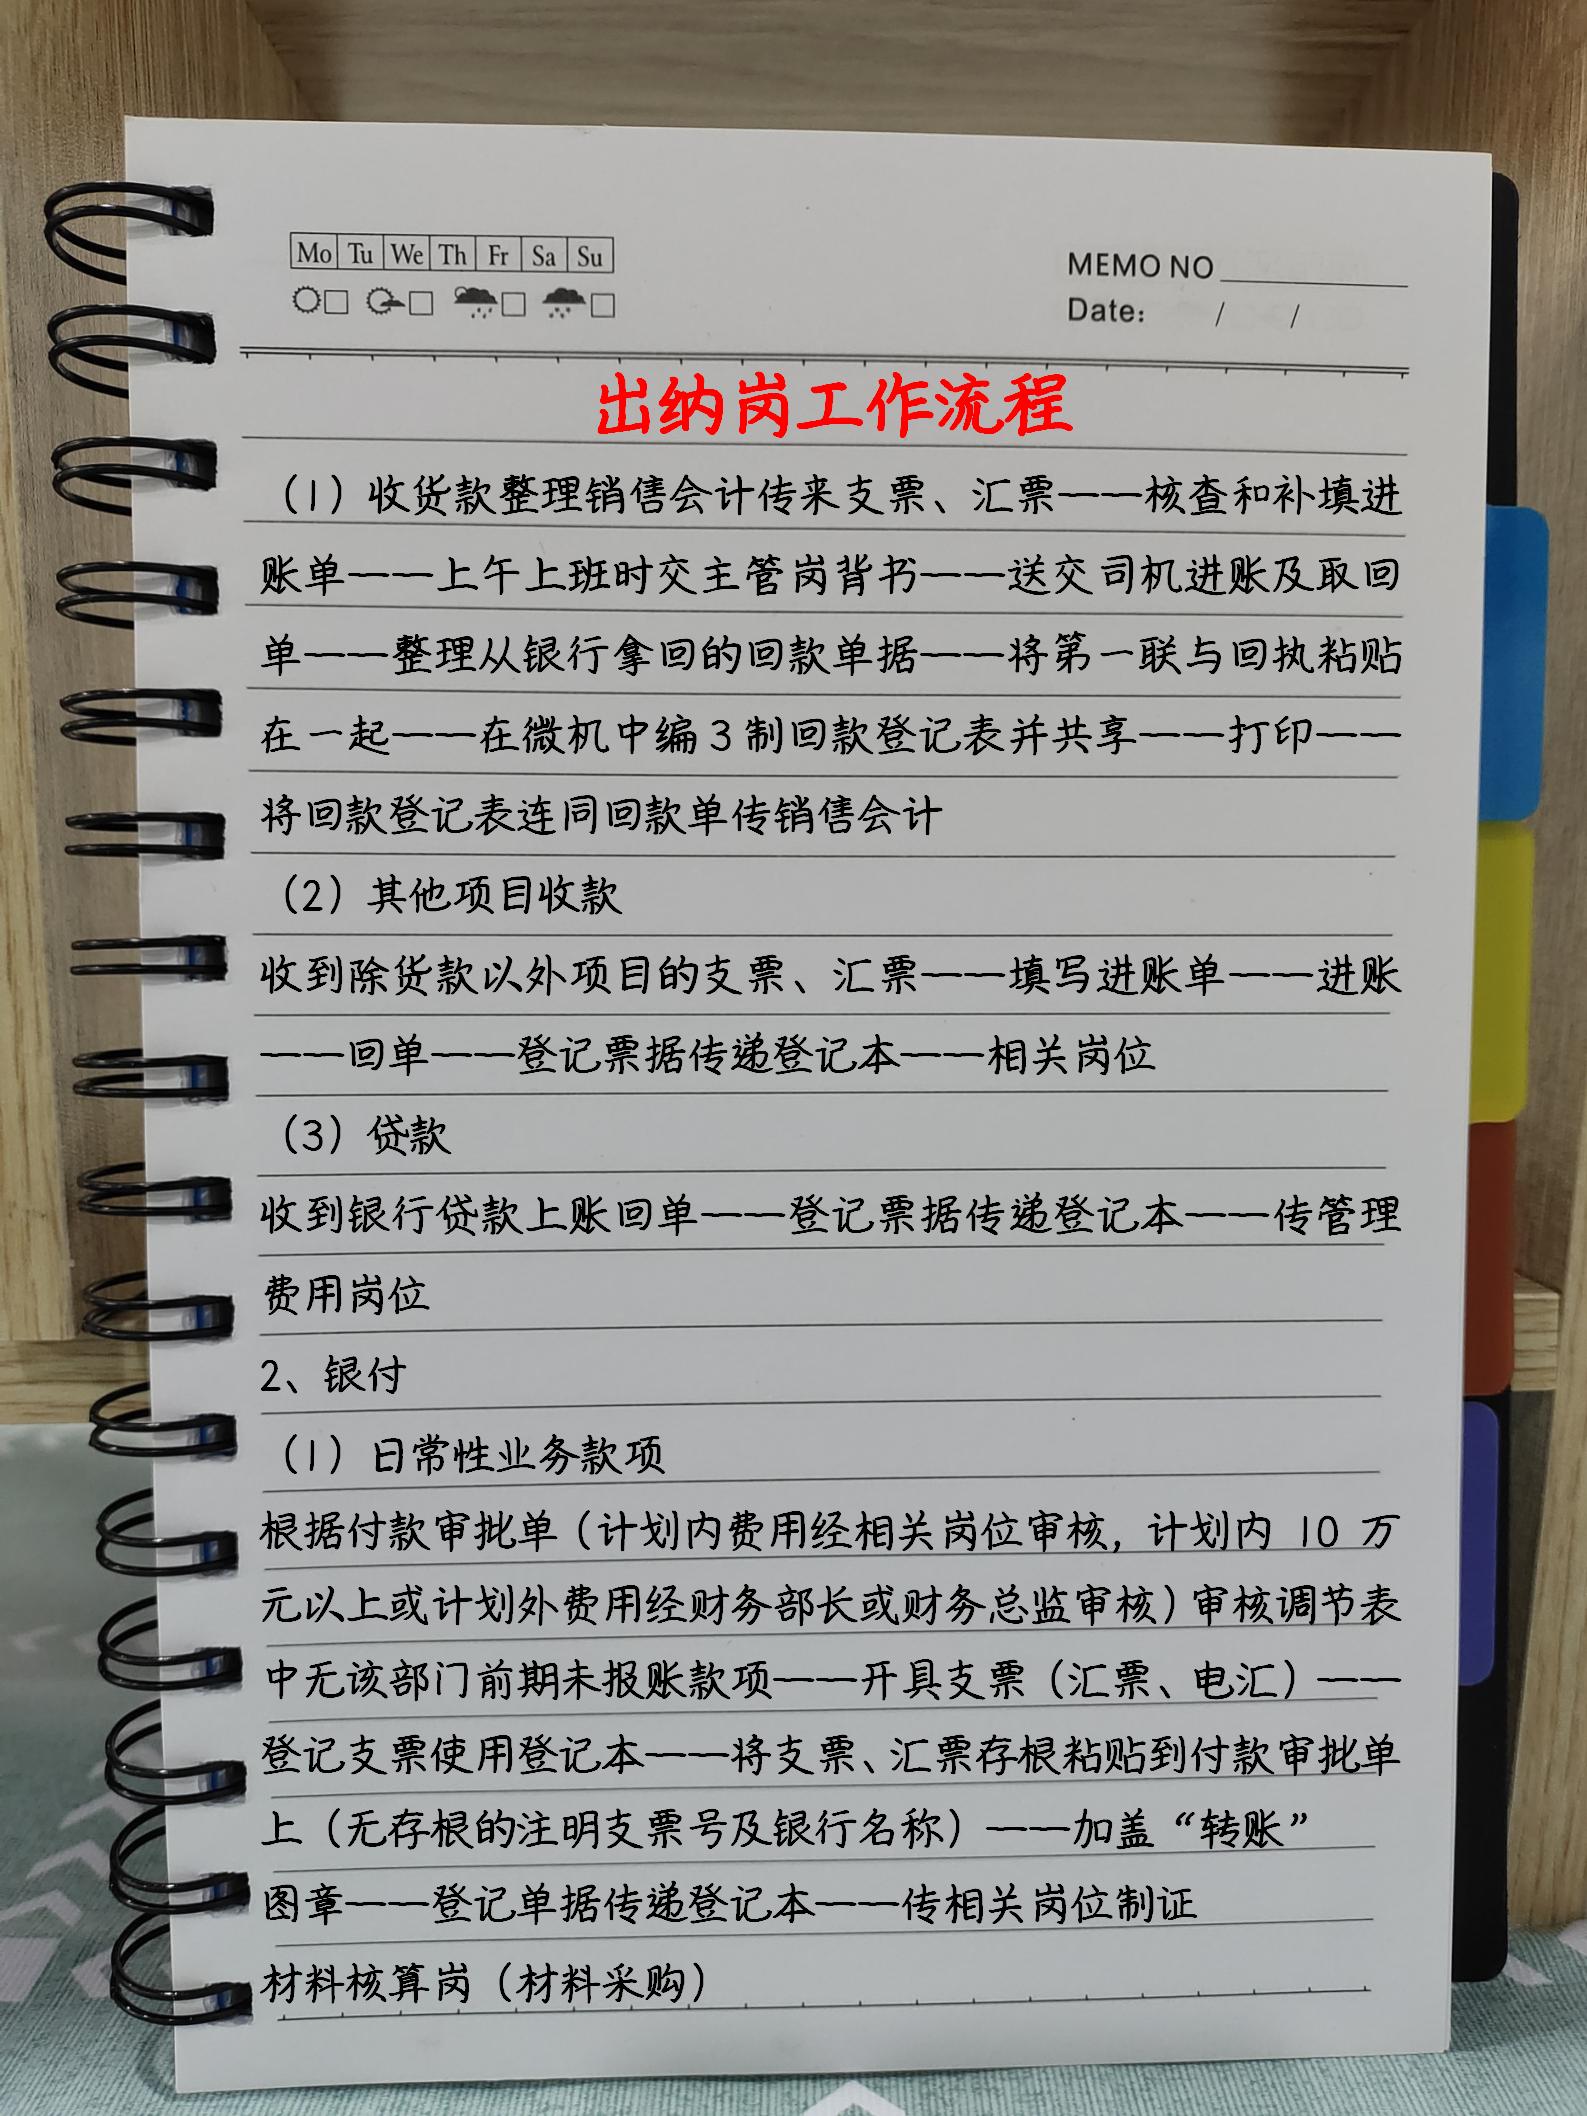 Mo Tu We Th Fr Sa Su
MEMO NO
Date: / /
出纳岗工作流程
（1）收货款整理销售会计传来支票、汇票——核查和补填进
账单——上午上班时交主管岗背书——送交司机进账及取回
单——整理从银行拿回的回款单据——将第一联与回执粘贴
在一起——在微机中编3制回款登记表并共享——打印——
将回款登记表连同回款单传销售会计
（2）其他项目收款
收到除货款以外项目的支票、汇票——填写进账单——进账
——回单——登记票据传递登记本——相关岗位
（3）贷款
收到银行贷款上账回单——登记票据传递登记本——传管理
费用岗位
2、银付
（1）日常性业务款项
根据付款审批单（计划内费用经相关岗位审核，计划内 10 万
元以上或计划外费用经财务部长或财务总监审核）审核调节表
中无该部门前期未报账款项——开具支票（汇票、电汇）——
登记支票使用登记本——将支票、汇票存根粘贴到付款审批单
上（无存根的注明支票号及银行名称）——加盖“转账”
图章——登记单据传递登记本——传相关岗位制证
材料核算岗（材料采购）